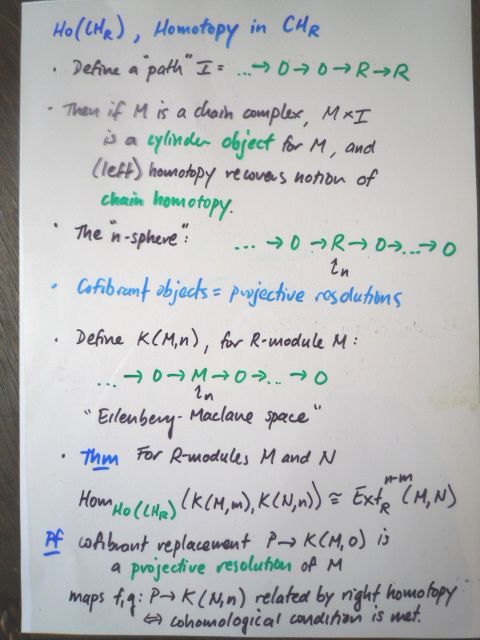 Ho(CH_R), Homotopy in CH_R
· Define a "path" I = ...→ 0 → 0 → R → R
· Then if M is a chain complex, M×I
is a cylinder object for M, and
(left) homotopy recovers notion of
chain homotopy.
· The "n-sphere": ... → 0 → R → 0 →...→ 0
n
· Cofibrant objects = projective resolutions
· Define K(M,n), for R-module M:
... → 0 → M → 0 →... → 0
n
"Eilenberg-Maclane space"
· Thm For R-modules M and N
Hom_Ho(CH_R) (K(M,m), K(N,n)) ≅ Ext_R^{n-m} (M,N)
Pf cofibrant replacement P → K(M,0) is
a projective resolution of M
maps f,g: P → K(N,n) related by right homotopy
⇔ cohomological condition is met.